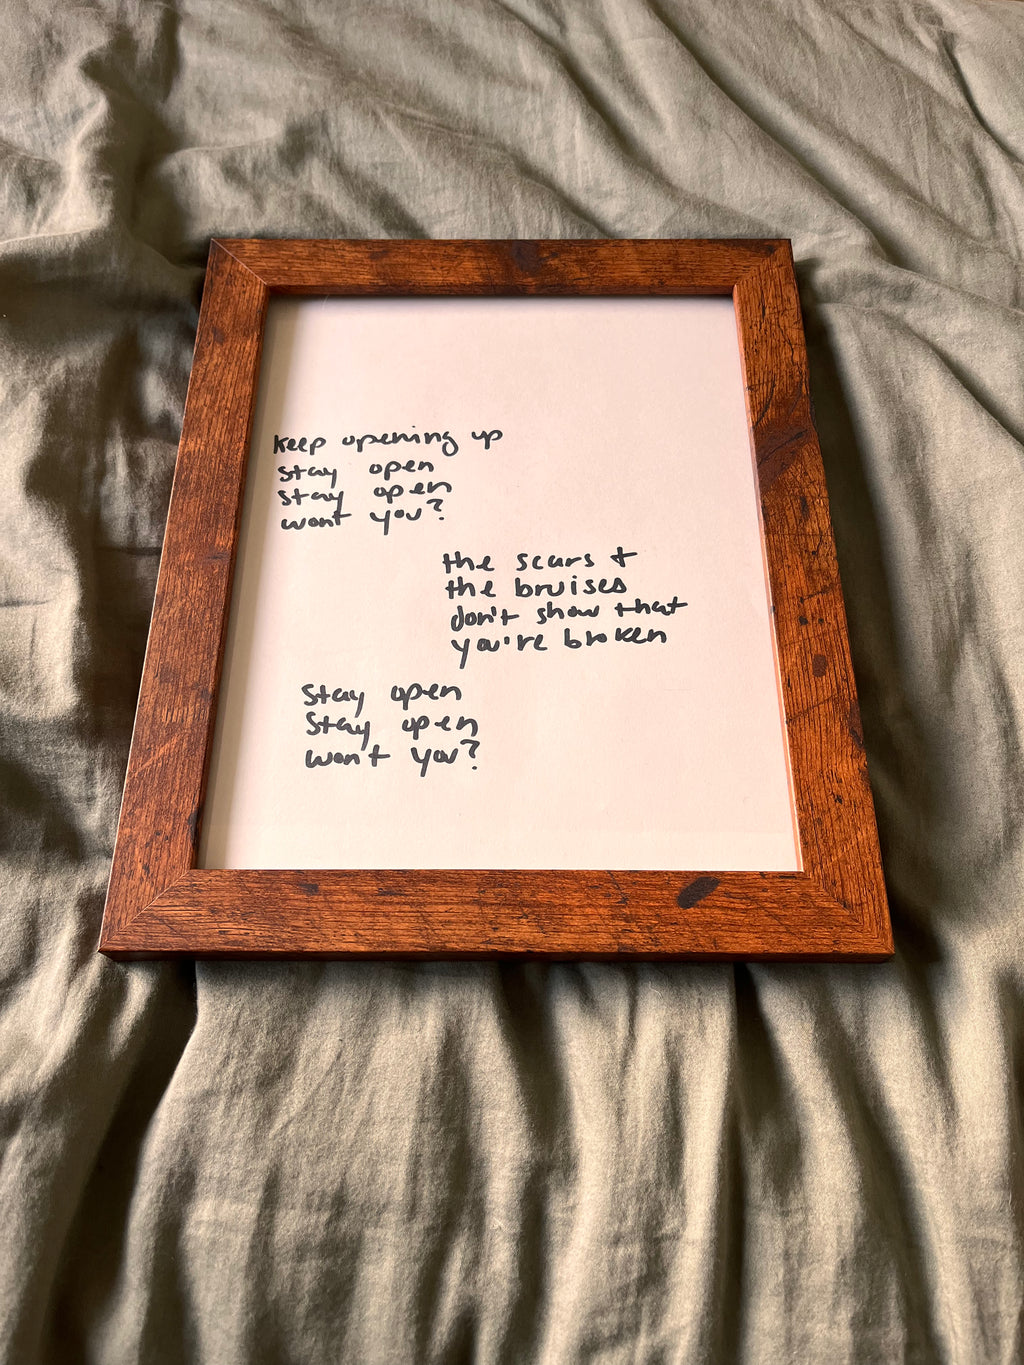 keep opening up
stay open
stay open
wont you?
the scars +
the bruises
don't show that
you're broken
stay open
stay open
won't you?